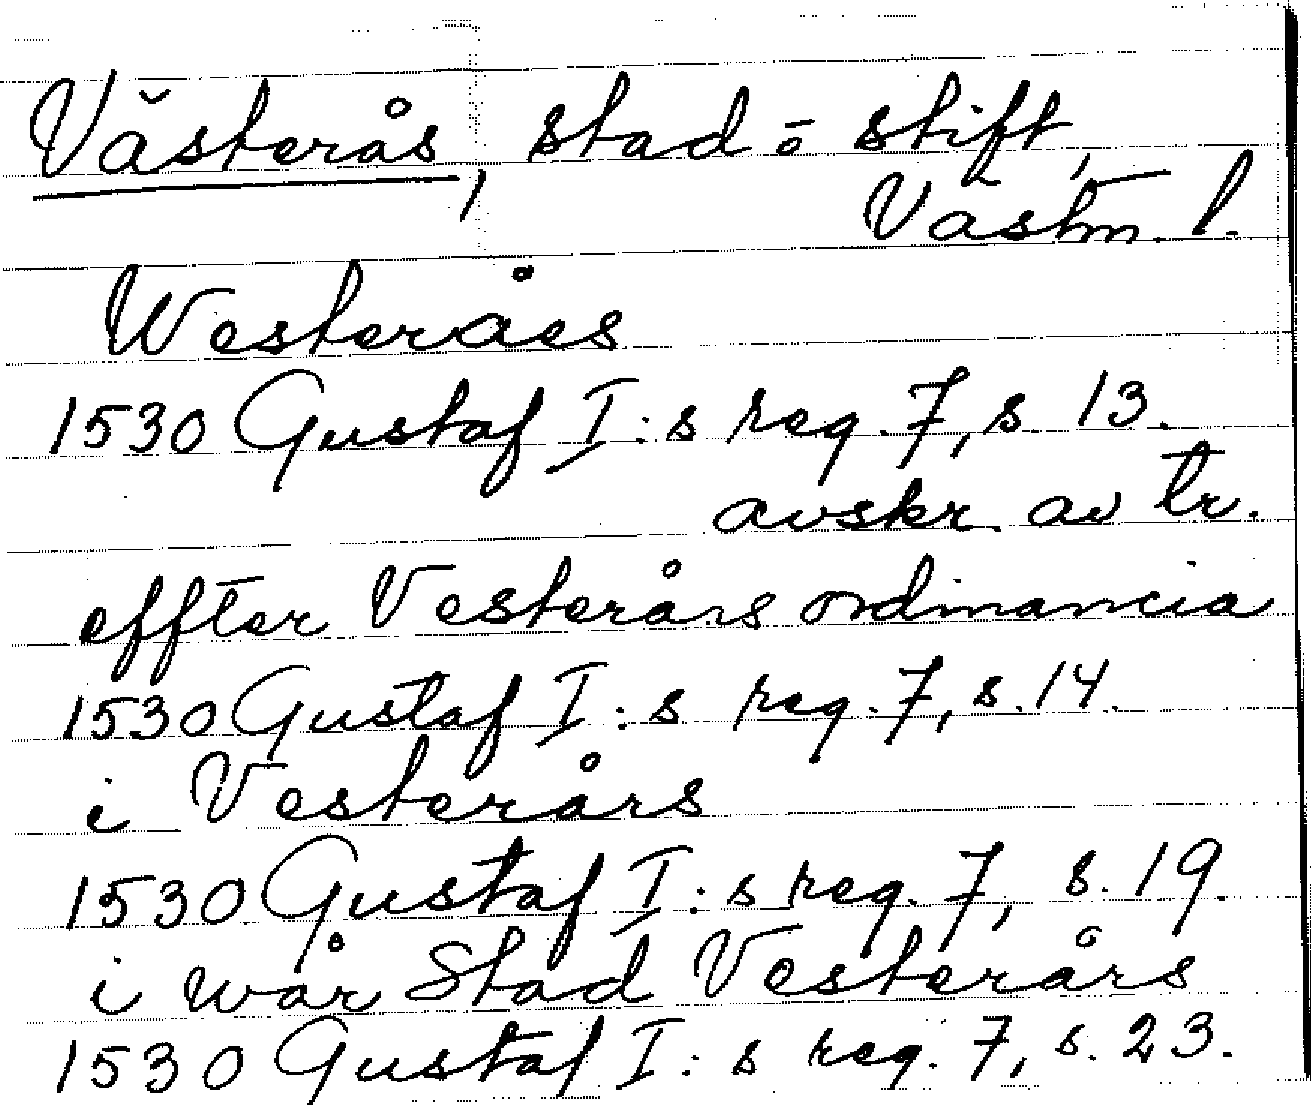 Västerås, stad o stift,
Västm. l.
Westeråes
1530 Gustaf I:s reg. 7, s. 13.
avskr. av tr.
effter Vesterårs ordinancia
1530 Gustaf I:s reg. 7, s. 14.
i Vesterårs
1530 Gustaf I:s reg. 7, s. 19.
i wår Stad Vesterårs
1530 Gustaf I:s reg. 7, s. 23.